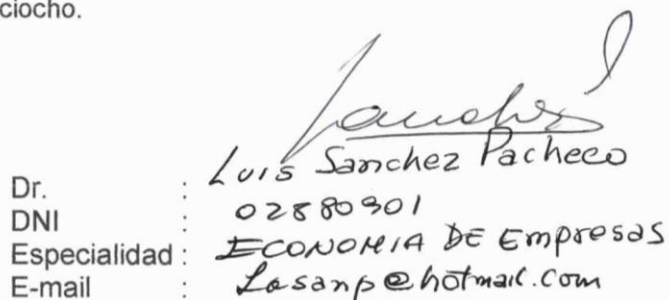 ciocho.
Sanchez
Dr. : Luis Sanchez Pacheco
DNI : 02880901
Especialidad : ECONOMIA DE Empresas
E-mail : Lasanp@hotmail.com